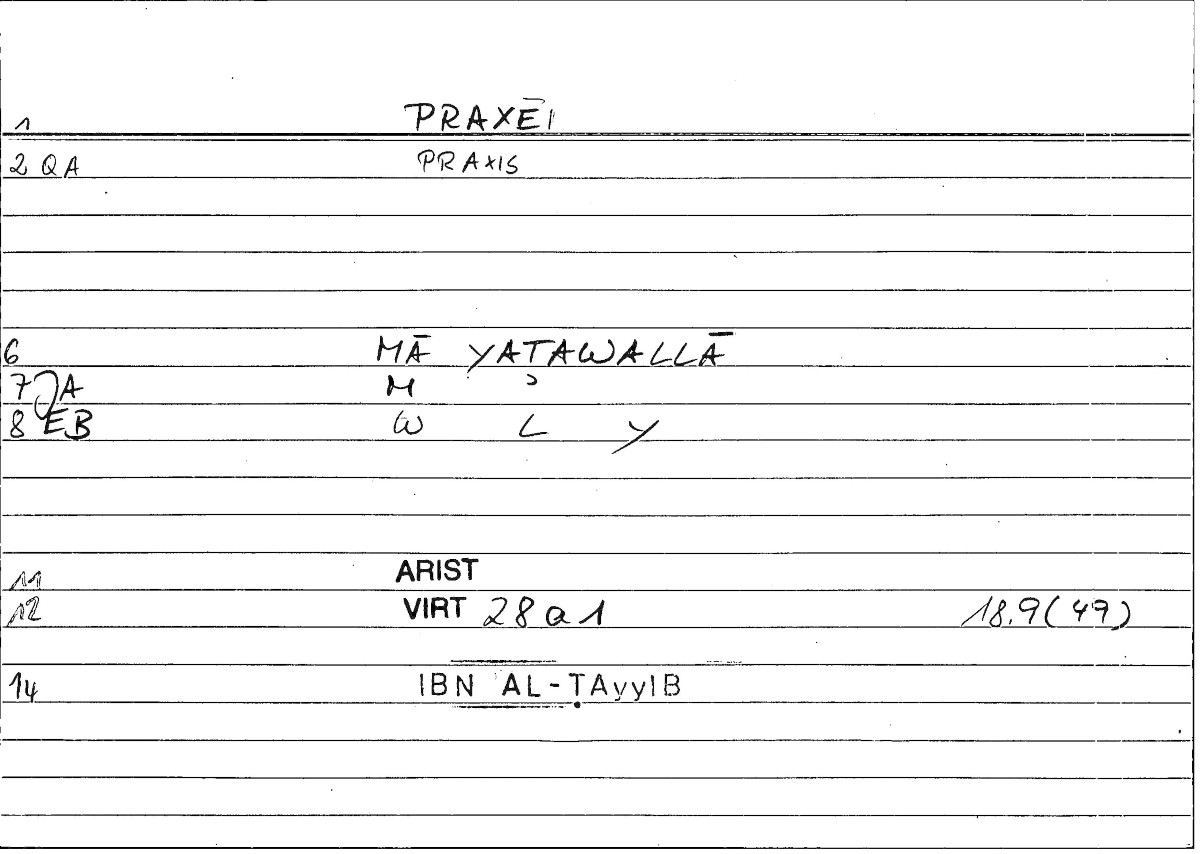 1 PRAXĒI
2 QA PRAXIS
6 MĀ YATAWALLĀ
7 JA M ʾ
8 EB W L Y
11 ARIST
12 VIRT 28a1 18.9(49)
14 IBN AL-ṬAyyIB